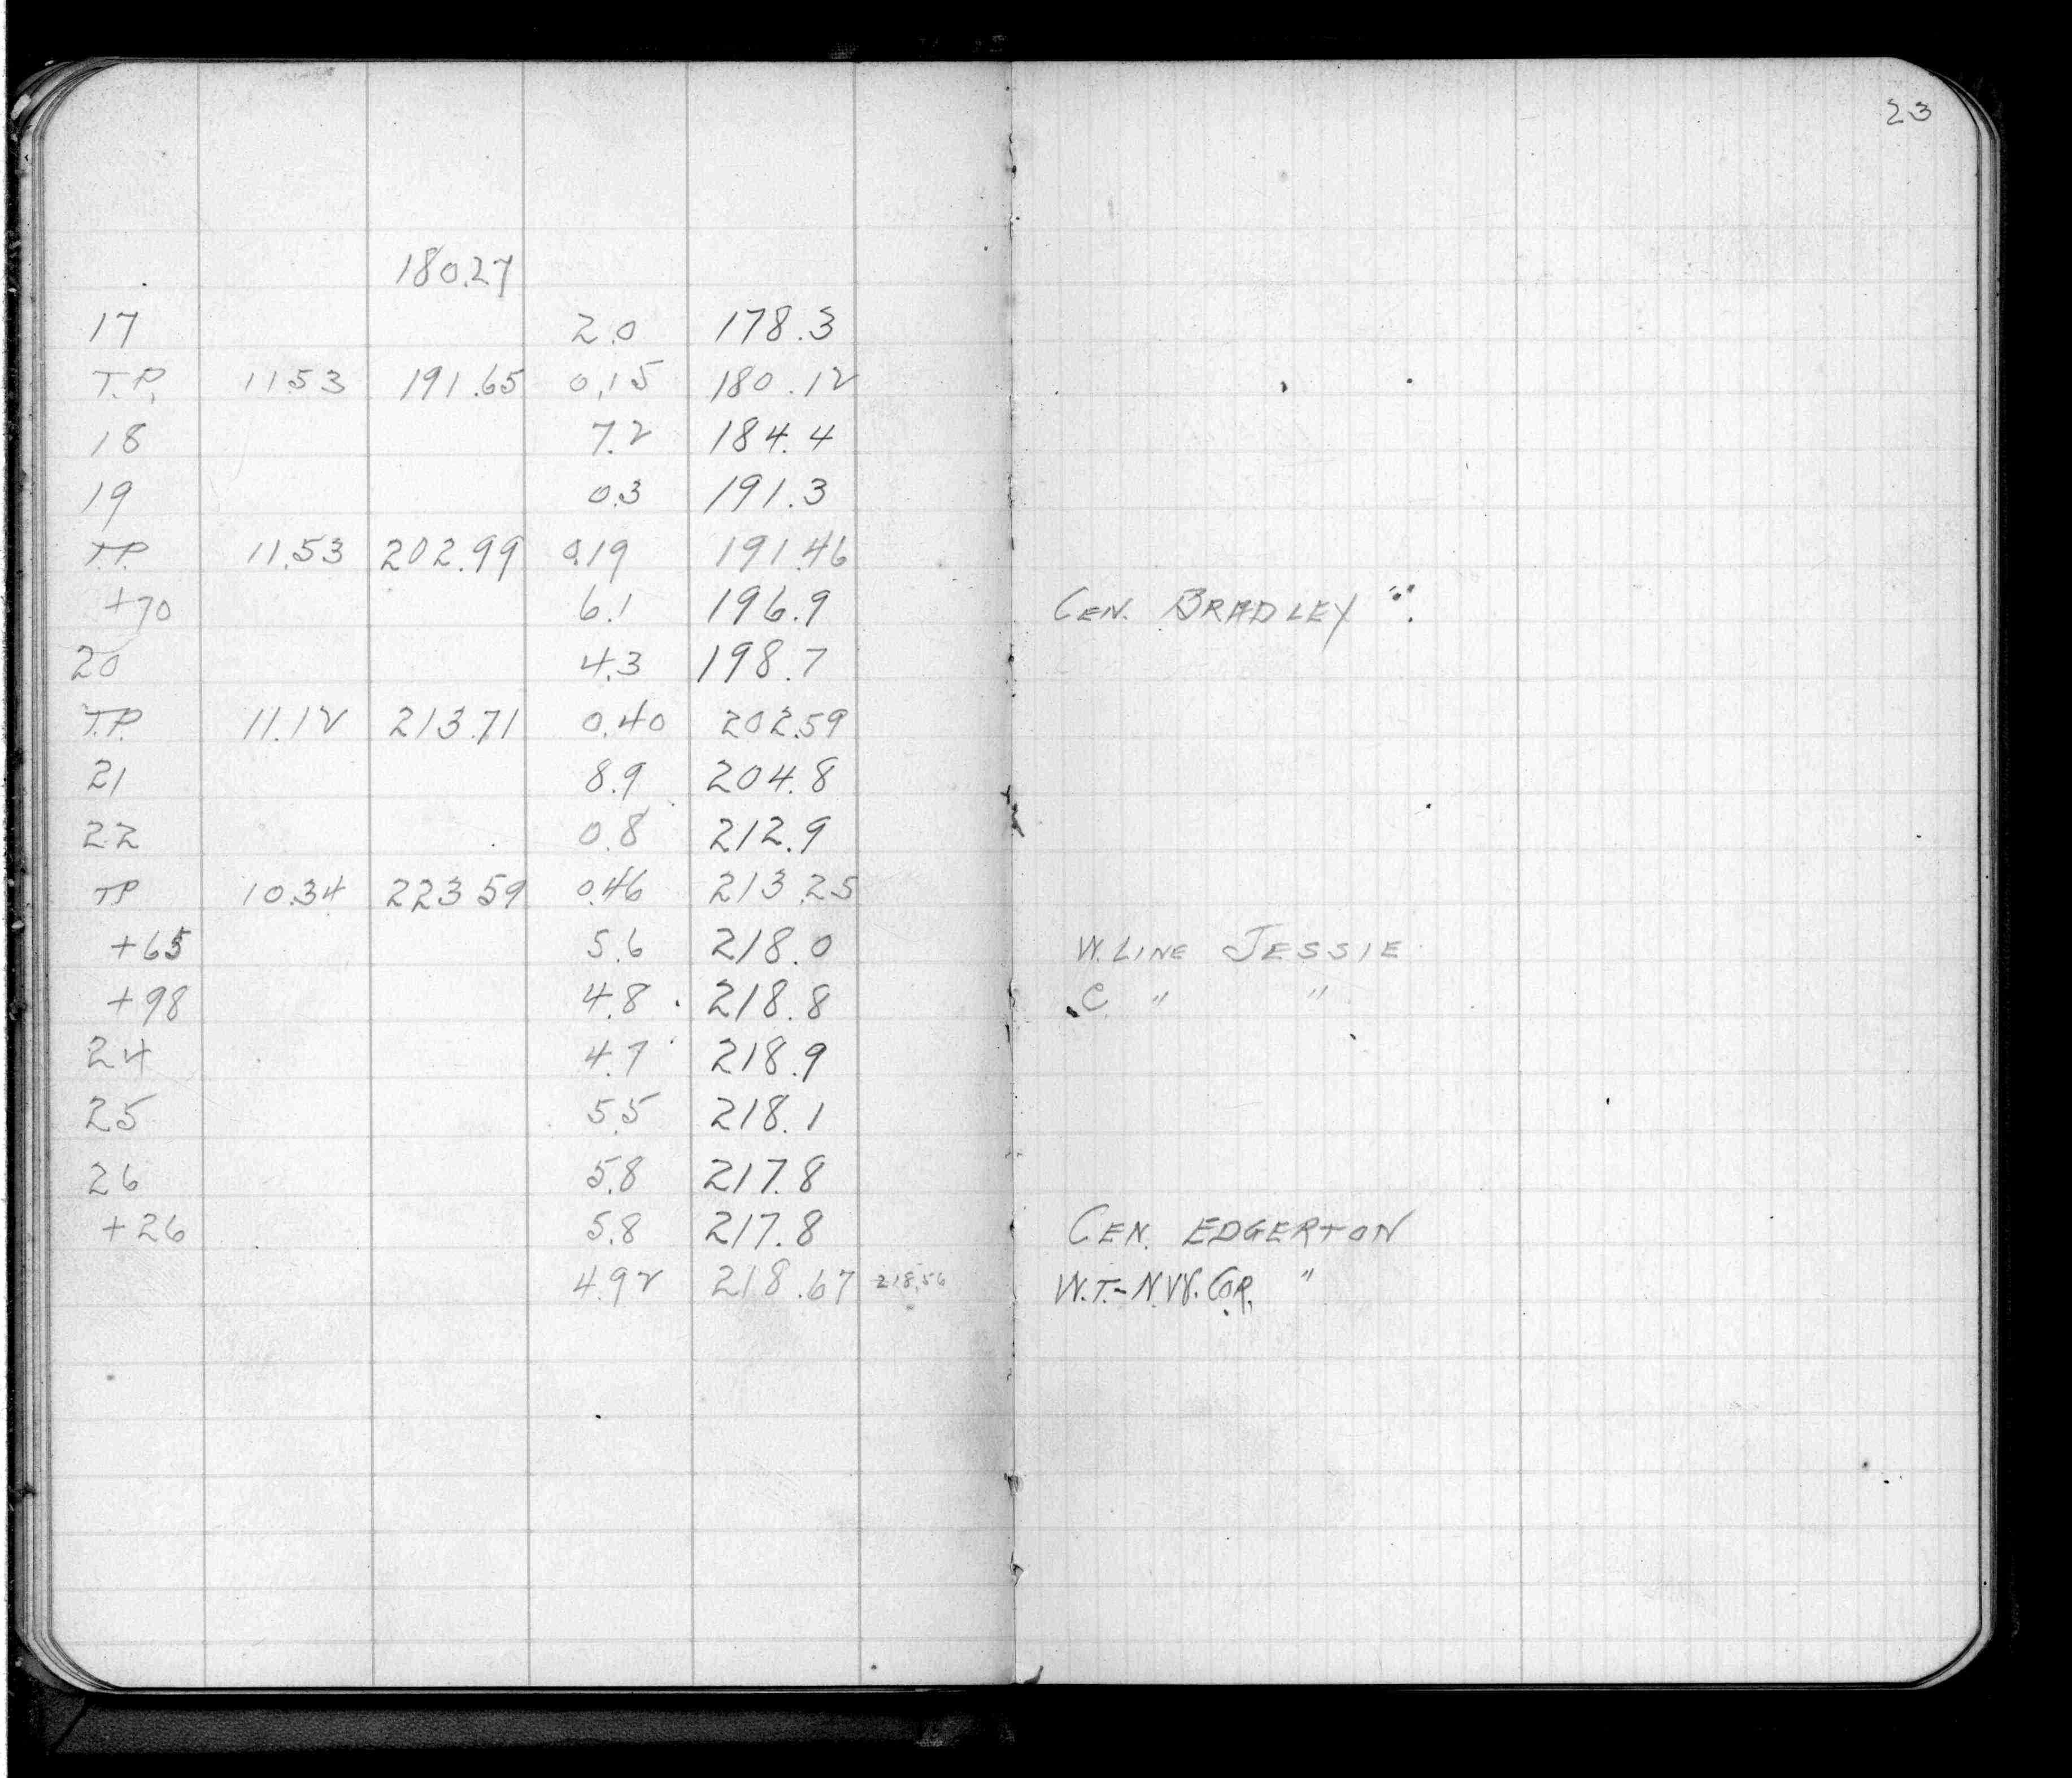 23
180.27
17 2.0 178.3
T.P. 11.53 191.65 0.15 180.12
18 7.2 184.4
19 0.3 191.3
T.P. 11.53 202.99 0.19 191.46
+70 6.1 196.9 CEN. BRADLEY "
20 4.3 198.7
T.P. 11.12 213.71 0.40 202.59
21 8.9 204.8
22 0.8 212.9
TP 10.34 223.59 0.46 213.25
+65 5.6 218.0 W. LINE JESSIE
+98 4.8 218.8 C " "
24 4.7 218.9
25 5.5 218.1
26 5.8 217.8
+26 5.8 217.8 CEN. EDGERTON
4.92 218.67 218.56 W.T.- N.W. COR. "